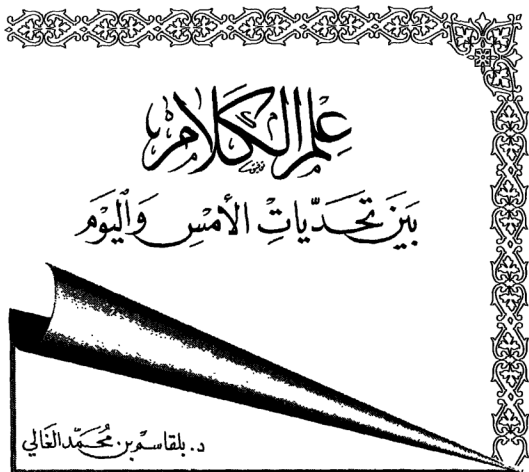 عِلم الكَلَام
بَيْن تحَدّيَاتِ الأمْسِ وَاليَوْم
د. بلقاسم بن محَمَّد الغَالي